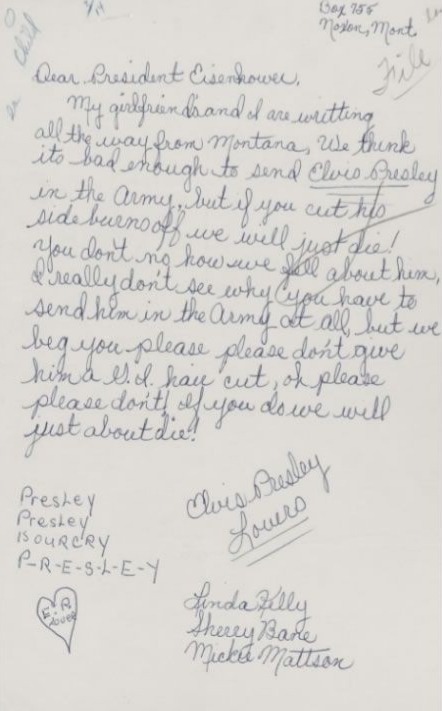 Box 755
Noxon, Mont
File
Child
Dear President Eisenhower,
My girlfriend's and I are writting
all the way from Montana, We think
its bad enough to send Elvis Presley
in the Army, but if you cut his
side burns off we will just die!
You don't no how we fell about him,
I really don't see why you have to
send him in the Army at all, but we
beg you please please don't give
him a G.I. hair cut, oh please
please don't! If you do we will
just about die!
Elvis Presley
Lovers
Presley
Presley
IS OUR CRY
P-R-E-S-L-E-Y
E.P.
LOVER
Linda Kelly
Sherry Bane
Mickie Mattson